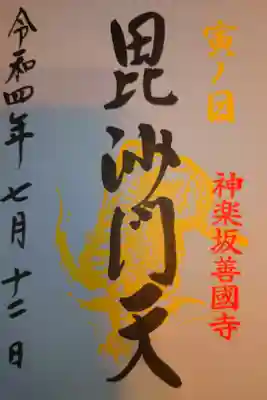 寅ノ日
神楽坂善國寺
毘沙門天
令和四年七月十二日